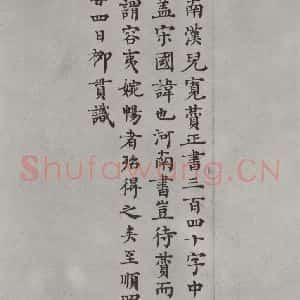 南漢兒寬贊正書三百四十字中
蓋宋國諱也河南書豈待贊而
謂容夷婉暢者殆得之矣至順四
廿四日柳貫識
Shufawang.CN